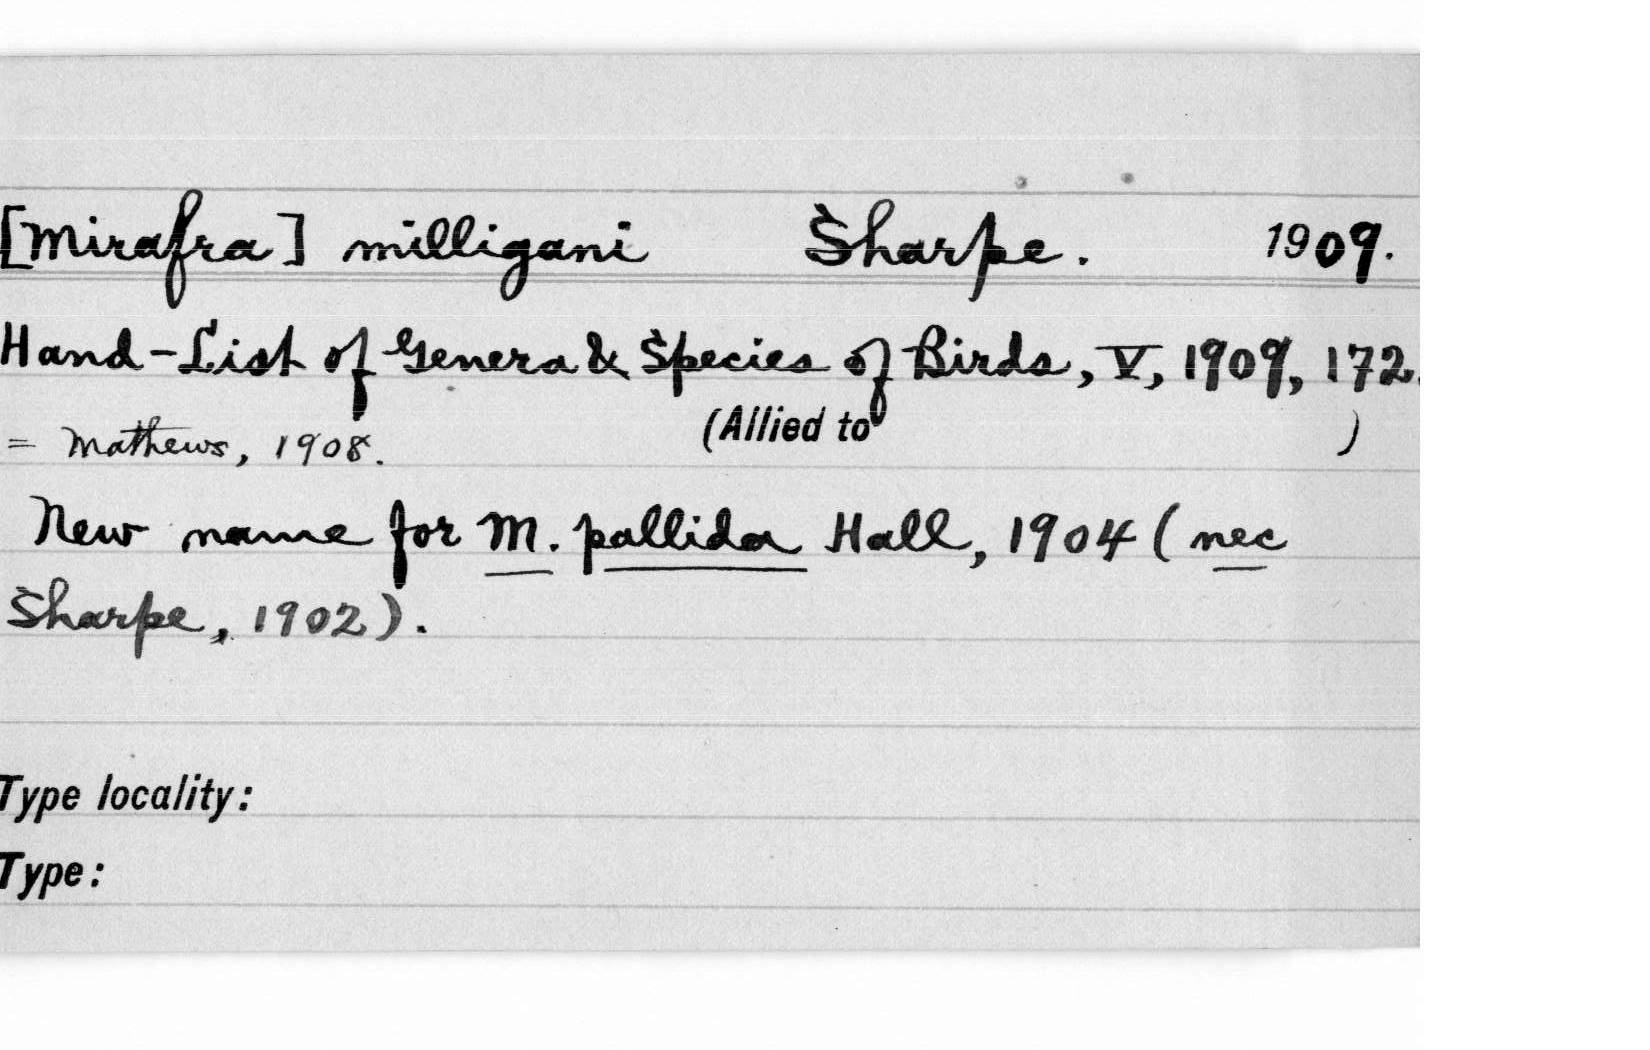 [Mirafra] milligani Sharpe. 1909.
Hand-List of Genera & Species of Birds, V, 1909, 172.
(Allied to )
= Mathews, 1908.
New name for M. pallida Hall, 1904 (nec
Sharpe, 1902).
Type locality:
Type: